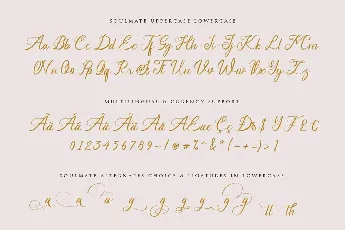 SOULMATE UPPERCASE LOWERCASE
Aa Bb Cc Dd Ee Ff Gg Hh Ii Jj Kk Ll Mm
Nn Oo Pp Qq Rr Ss Tt Uu Vv Ww Xx Yy Zz
MULTILINGUAL & CURENCY SUPPORT
0123456789
SOULMATE ALTERNATES CHOICE & LIGATURES IN LOWERCASE
a a a y g g g g ll th